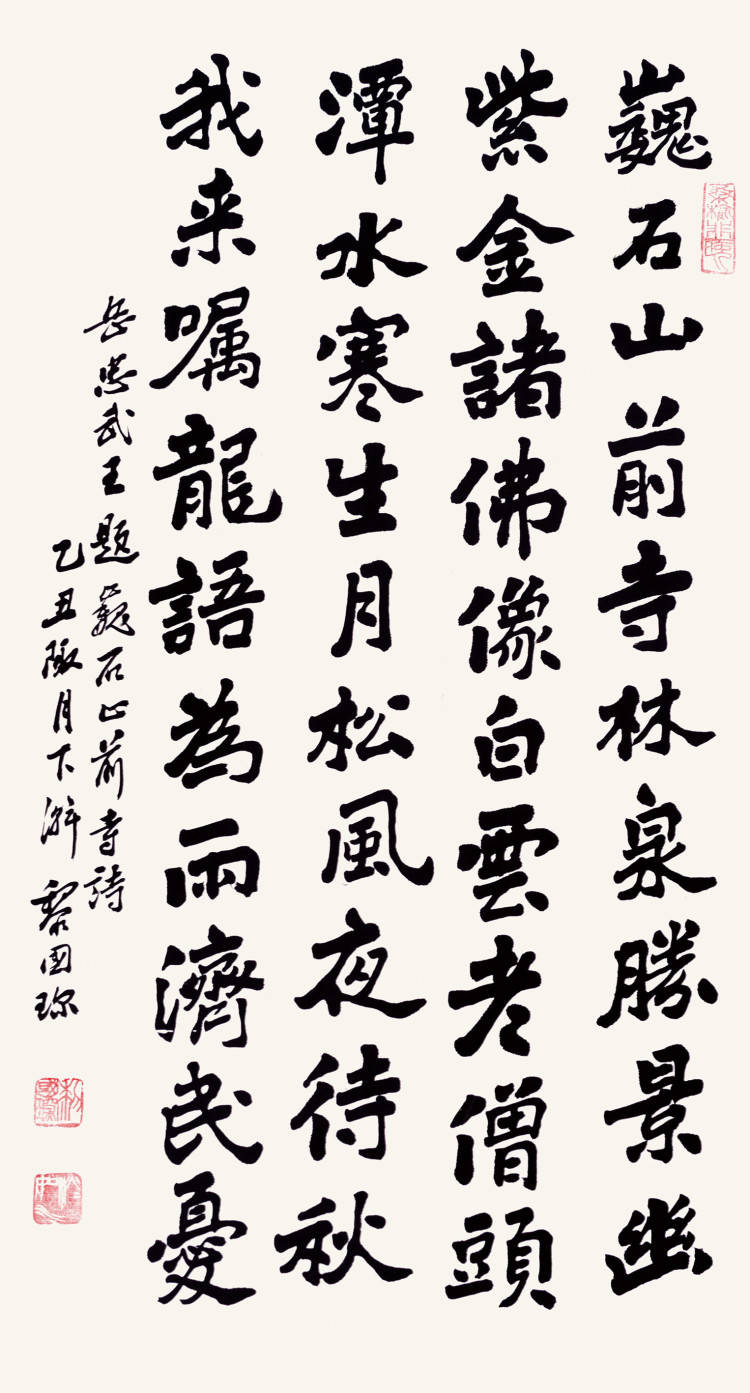 巍石山前寺林泉勝景幽
紫金諸佛像白雲老僧頭
潭水寒生月松風夜待秋
我来嘱龍語為雨濟民憂
岳忠武王题巍石山前寺詩
乙丑陬月下澣 黎国